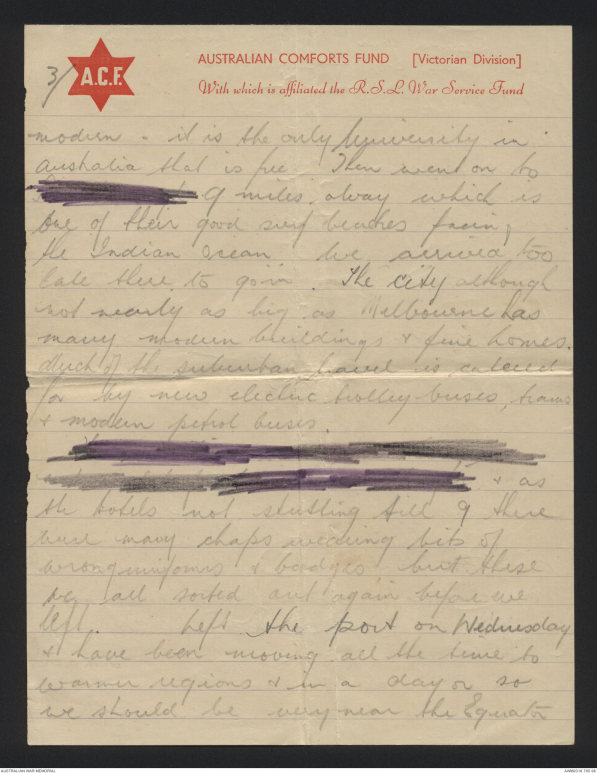 3/
A.C.F.
AUSTRALIAN COMFORTS FUND [Victorian Division]
With which is affiliated the R.S.L. War Service Fund
modern - it is the only University in
Australia that is free. Then went on to
9 miles away which is
one of their good surf beaches facing
the Indian Ocean. We arrived too
late there to go in. The city although
not nearly as big as Melbourne has
many modern buildings & fine homes.
Much of the suburban travel is catered
for by new electric trolley-buses, trams
& modern petrol buses.
& as
the hotels not shutting till 9 there
were many chaps wearing bits of
wrong uniforms & badges but these
we all sorted out again before we
left. Left the port on Wednesday
& have been moving all the time to
warmer regions & in a day or so
we should be very near the Equator
AUSTRALIAN WAR MEMORIAL